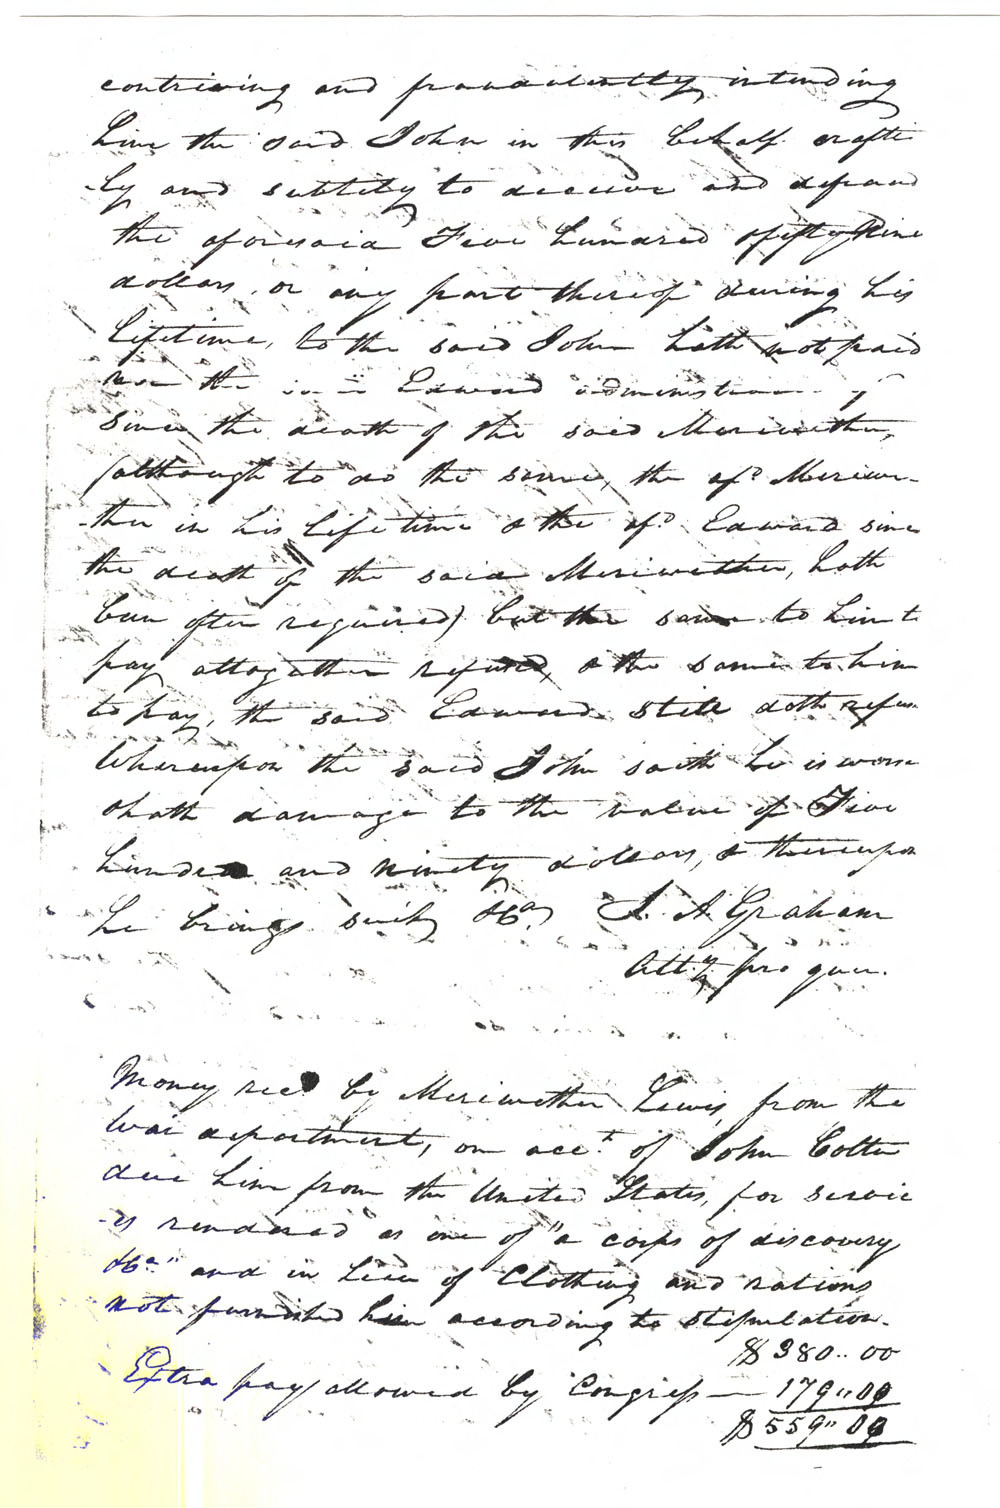 contriving and fraudulently intending
him the said John in this behalf crafti
-ly and subtlely to deceive and defraud
the aforesaid Five hundred & fifty Nine
dollars, or any part thereof during his
lifetime, to the said John hath not paid
nor the Edward administrator
since the death of the said Meriwether,
(although to do the same, the afd Meriwe-
-ther in his lifetime & the afd Edward since
the death of the said Meriwether, hath
been often required) but the same to him to
pay altogather refused, & the same to him
to pay, the said Edward still doth refuse
Whereupon the said John saith he is worse
& hath damage to the value of Five
hundred and ninety dollars, & thereupon
he brings suit, &ca, A Graham
Atty pro quer.
Money recd by Meriwether Lewis, from the
War department, on acct. of John Colter
due him from the United States, for servic
-es rendered as one of "a corps of discovery
&ca." and in lieu of Clothing and rations
not furnished him according to stipulation.
$380..00
Extra pay allowed by Congress — 179"00
$559"00